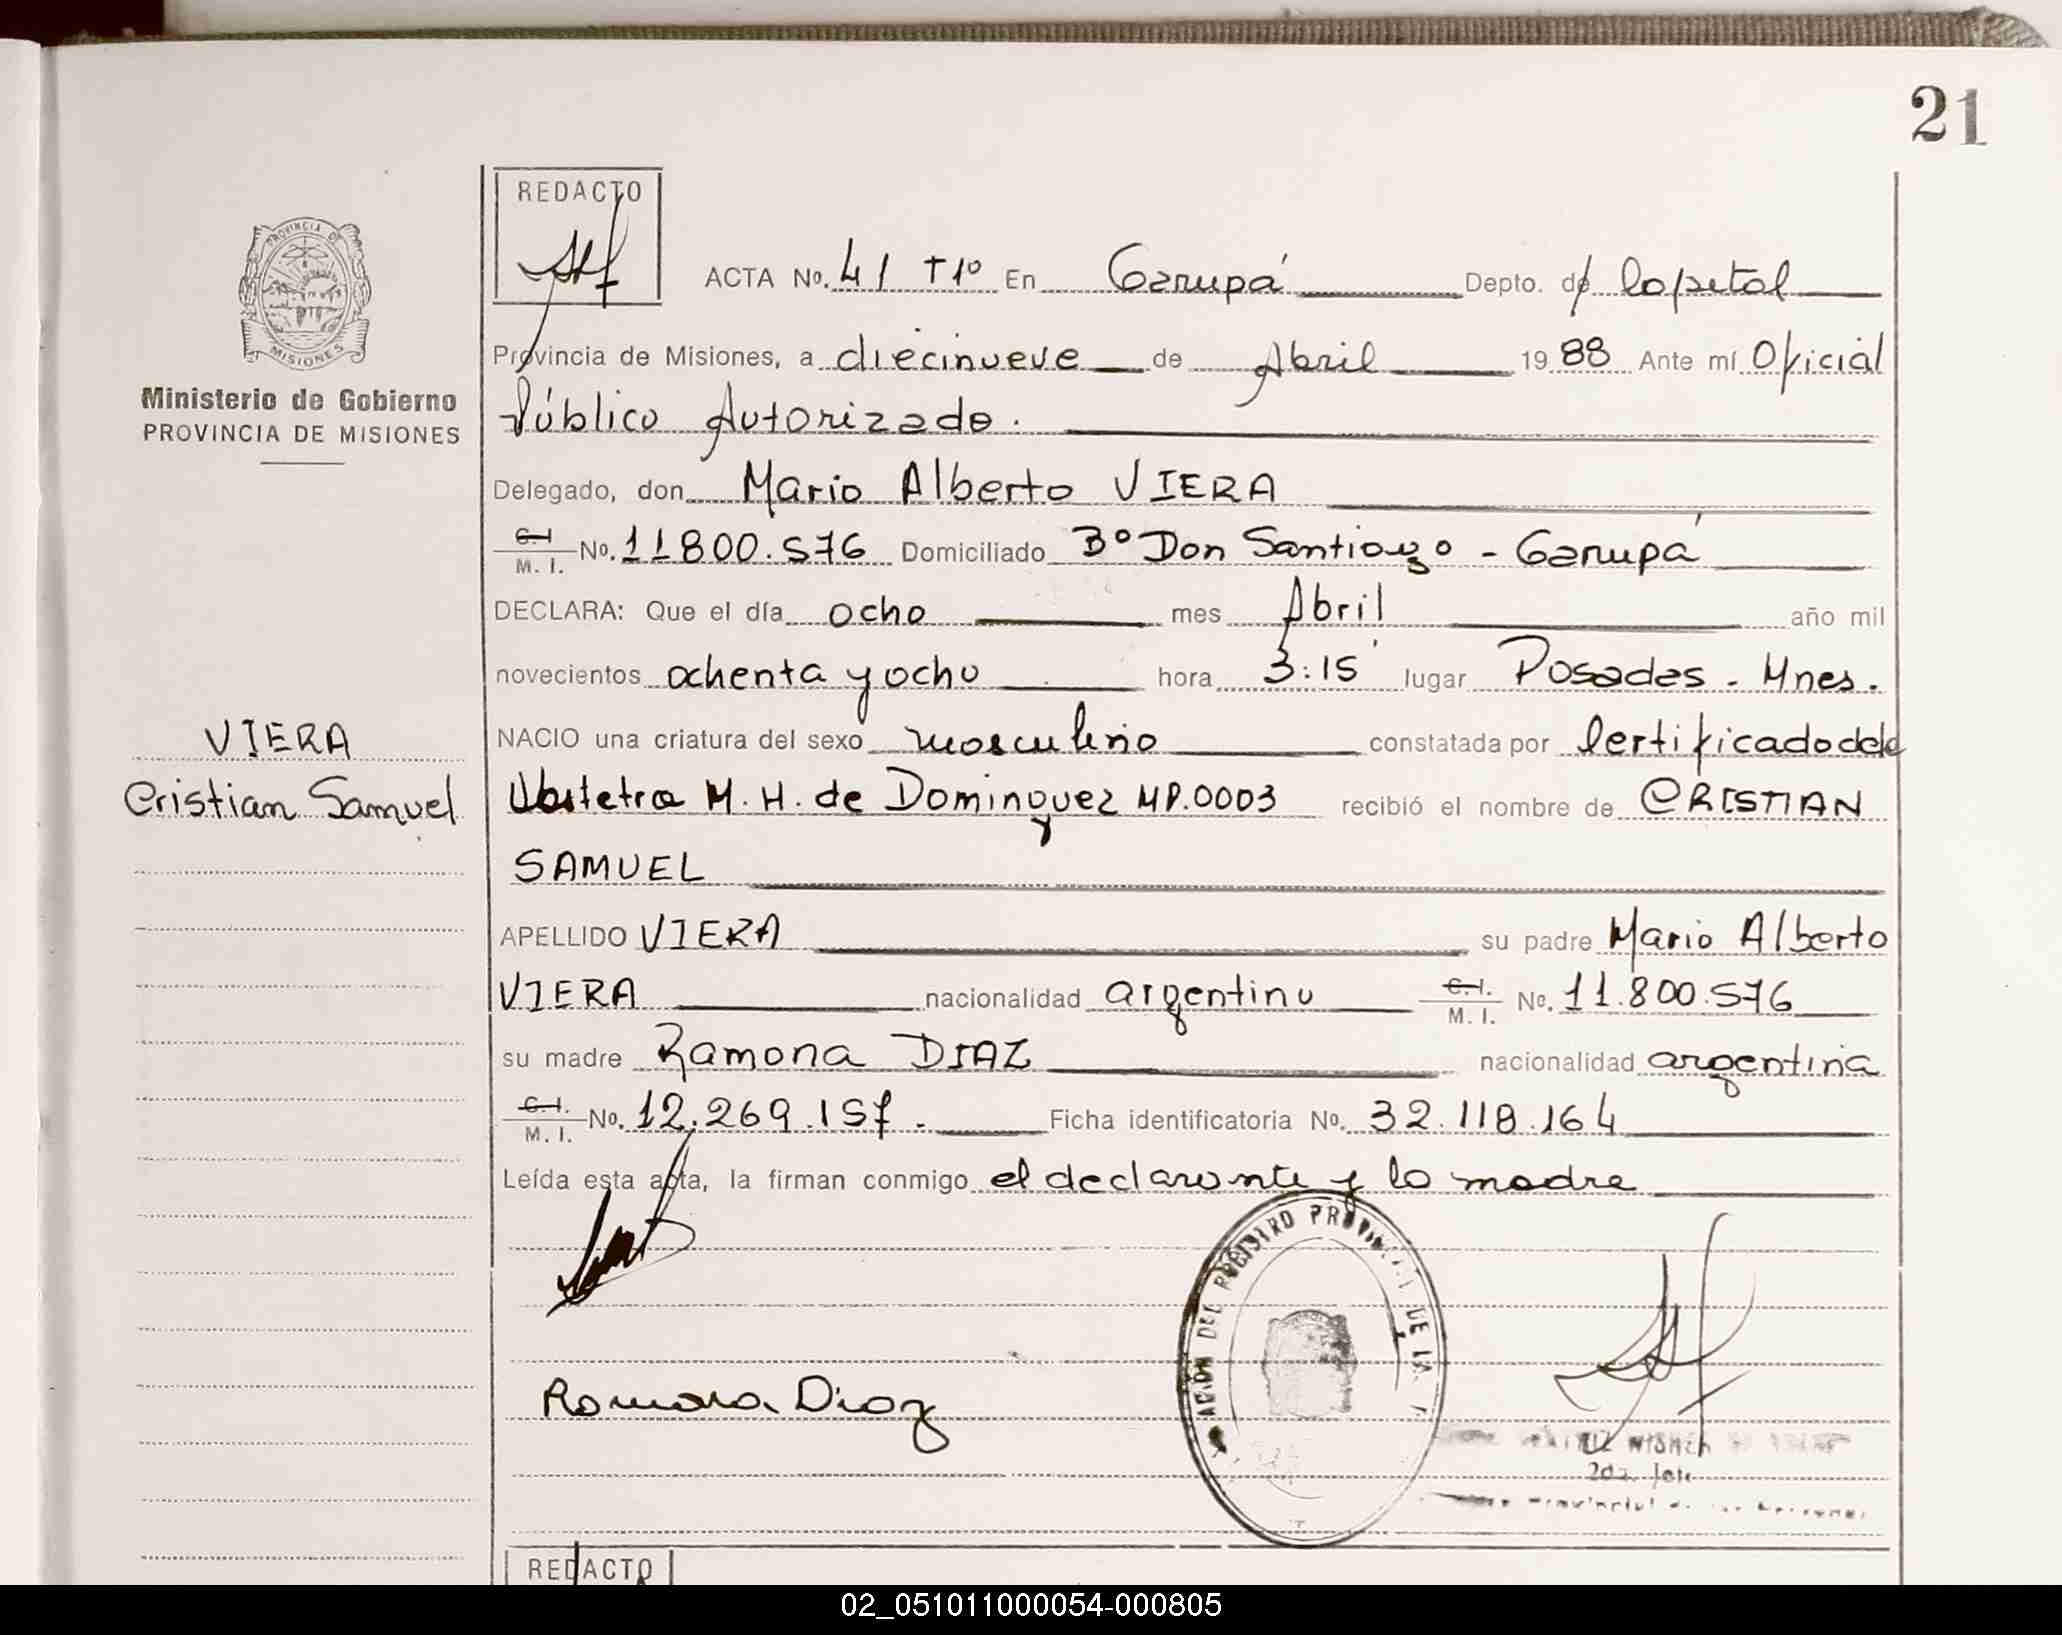 21
REDACTO
PROVINCIA DE
MISIONES
Ministerio de Gobierno
PROVINCIA DE MISIONES
ACTA No. 41 T1º En Garupá Depto. de Capital
Provincia de Misiones, a diecinueve de Abril 1988 Ante mí Oficial
Público Autorizado.
Delegado, don Mario Alberto VIERA
C.I. M. I. No. 11800.576 Domiciliado Bº Don Santiago - Garupá
DECLARA: Que el día ocho mes Abril año mil
novecientos ochenta y ocho hora 3:15' lugar Posadas - Mnes.
VIERA
Cristian Samuel
NACIO una criatura del sexo masculino constatada por Certificado de la
Obstetra M. H. de Dominguez MP.0003 recibió el nombre de CRISTIAN
SAMUEL
APELLIDO VIERA su padre Mario Alberto
VIERA nacionalidad argentino C.I. M. I. No. 11.800.576
su madre Ramona DIAZ nacionalidad argentina
C.I. M. I. No. 12.269.157. Ficha identificatoria No. 32.118.164
Leída esta acta, la firman conmigo el declarante y la madre
DEL REGISTRO PROVINCIAL DE LA
Ramona Diaz
REDACTO
02_051011000054-000805